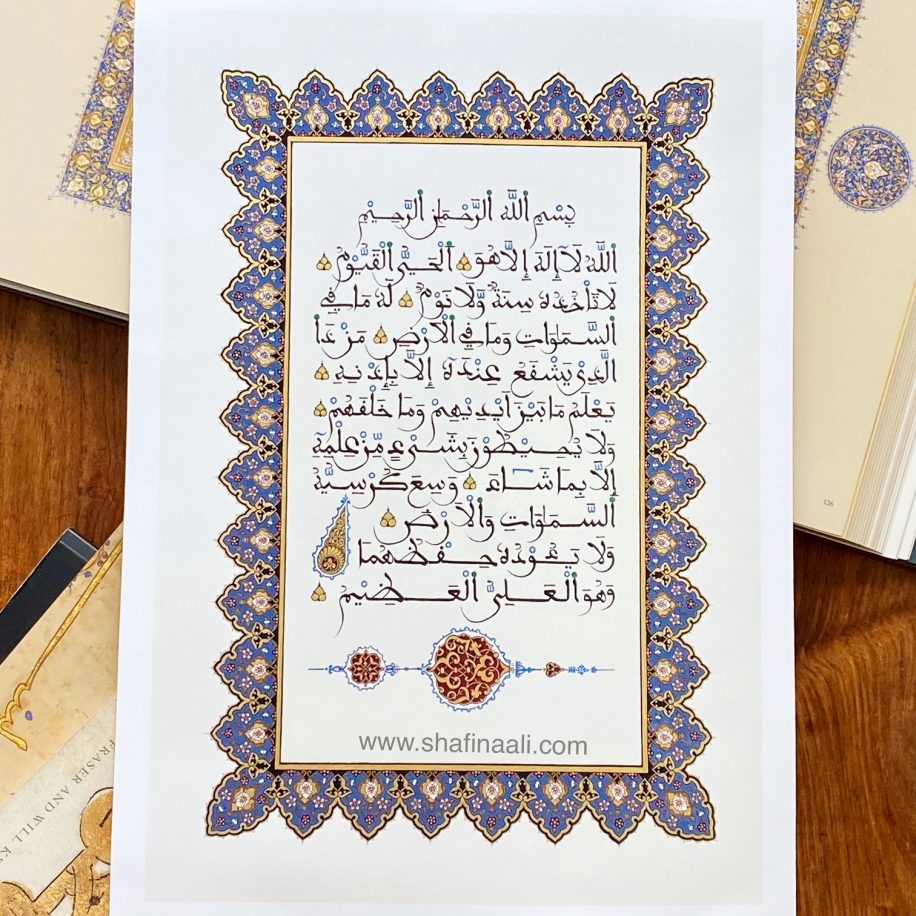 بِسْمِ اللَّهِ الرَّحْمَٰنِ الرَّحِيمِ
اللَّهُ لَا إِلَٰهَ إِلَّا هُوَ الْحَيُّ الْقَيُّومُ
لَا تَأْخُذُهُ سِنَةٌ وَلَا نَوْمٌ لَهُ مَا فِي
السَّمَاوَاتِ وَمَا فِي الْأَرْضِ مَنْ ذَا
الَّذِي يَشْفَعُ عِنْدَهُ إِلَّا بِإِذْنِهِ
يَعْلَمُ مَا بَيْنَ أَيْدِيهِمْ وَمَا خَلْفَهُمْ
وَلَا يُحِيطُونَ بِشَيْءٍ مِّنْ عِلْمِهِ
إِلَّا بِمَا شَاءَ وَسِعَ كُرْسِيُّهُ
السَّمَاوَاتِ وَالْأَرْضَ
وَلَا يَئُودُهُ حِفْظُهُمَا
وَهُوَ الْعَلِيُّ الْعَظِيمُ
www.shafinaali.com
126
FRASER AND WILL